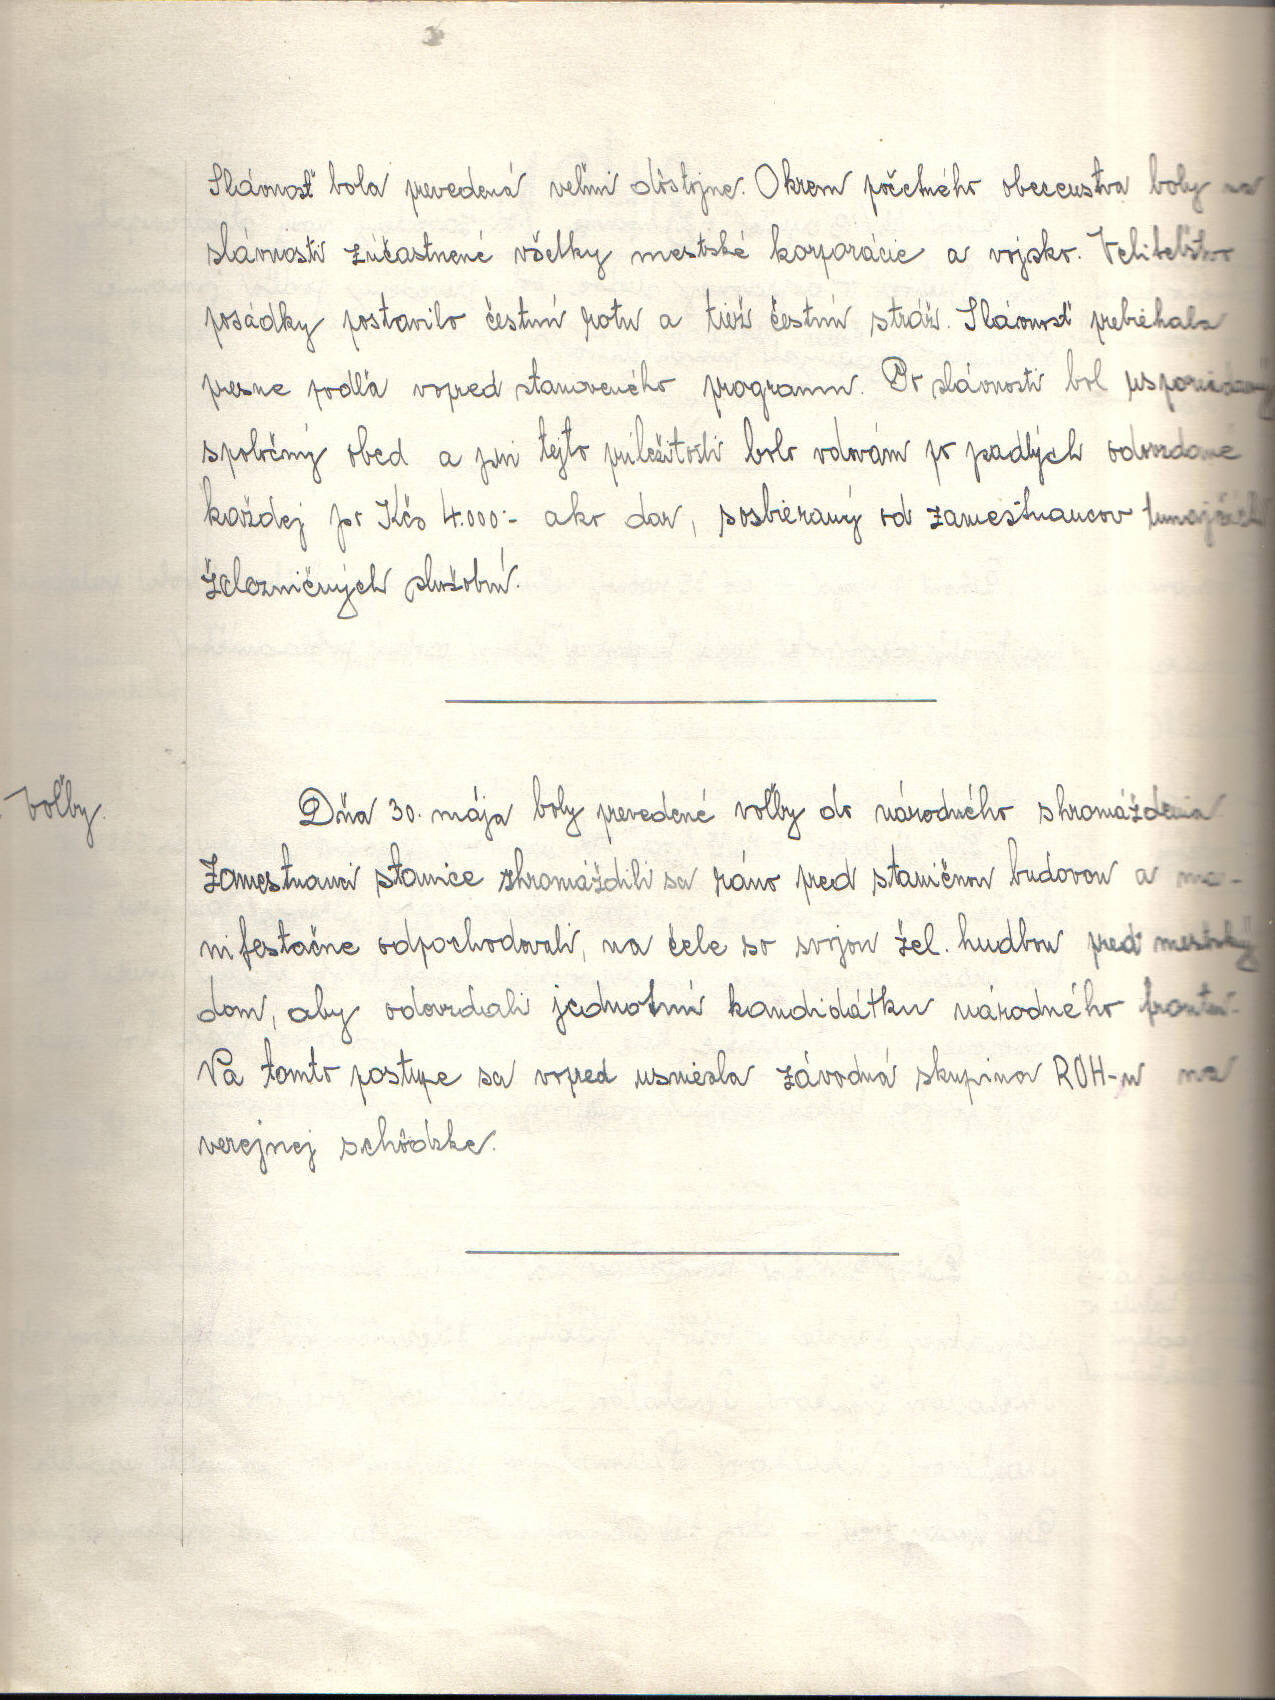 Slávnosť bola prevedená veľmi dôstojne. Okrem početného obecenstva boly na
slávnosti zúčastnené všetky mestské korporácie a vojsko. Veliteľstvo
posádky postavilo čestnú rotu a tiež čestnú stráž. Slávnosť prebiehala
presne podľa vopred stanoveného programu. Po slávnosti bol usporiadaný
spoločný obed a pri tejto príležitosti bolo vdovám po padlých odovzdané
každej po Kčs 4.000:- ako dar, sosbieraný od zamestnancov tunajších
železničných služobní.
Voľby.
Dňa 30. mája boly prevedené voľby do národného shromáždenia.
Zamestnanci stanice shromáždili sa ráno pred staničnou budovou a ma-
nifestačne odpochodovali, na čele so svojou žel. hudbou pred mestský
dom, aby odovzdali jednotnú kandidátku národného frontu.
Na tomto postupe sa vopred usniesla závodná skupina ROH-u na
verejnej schôdzke.